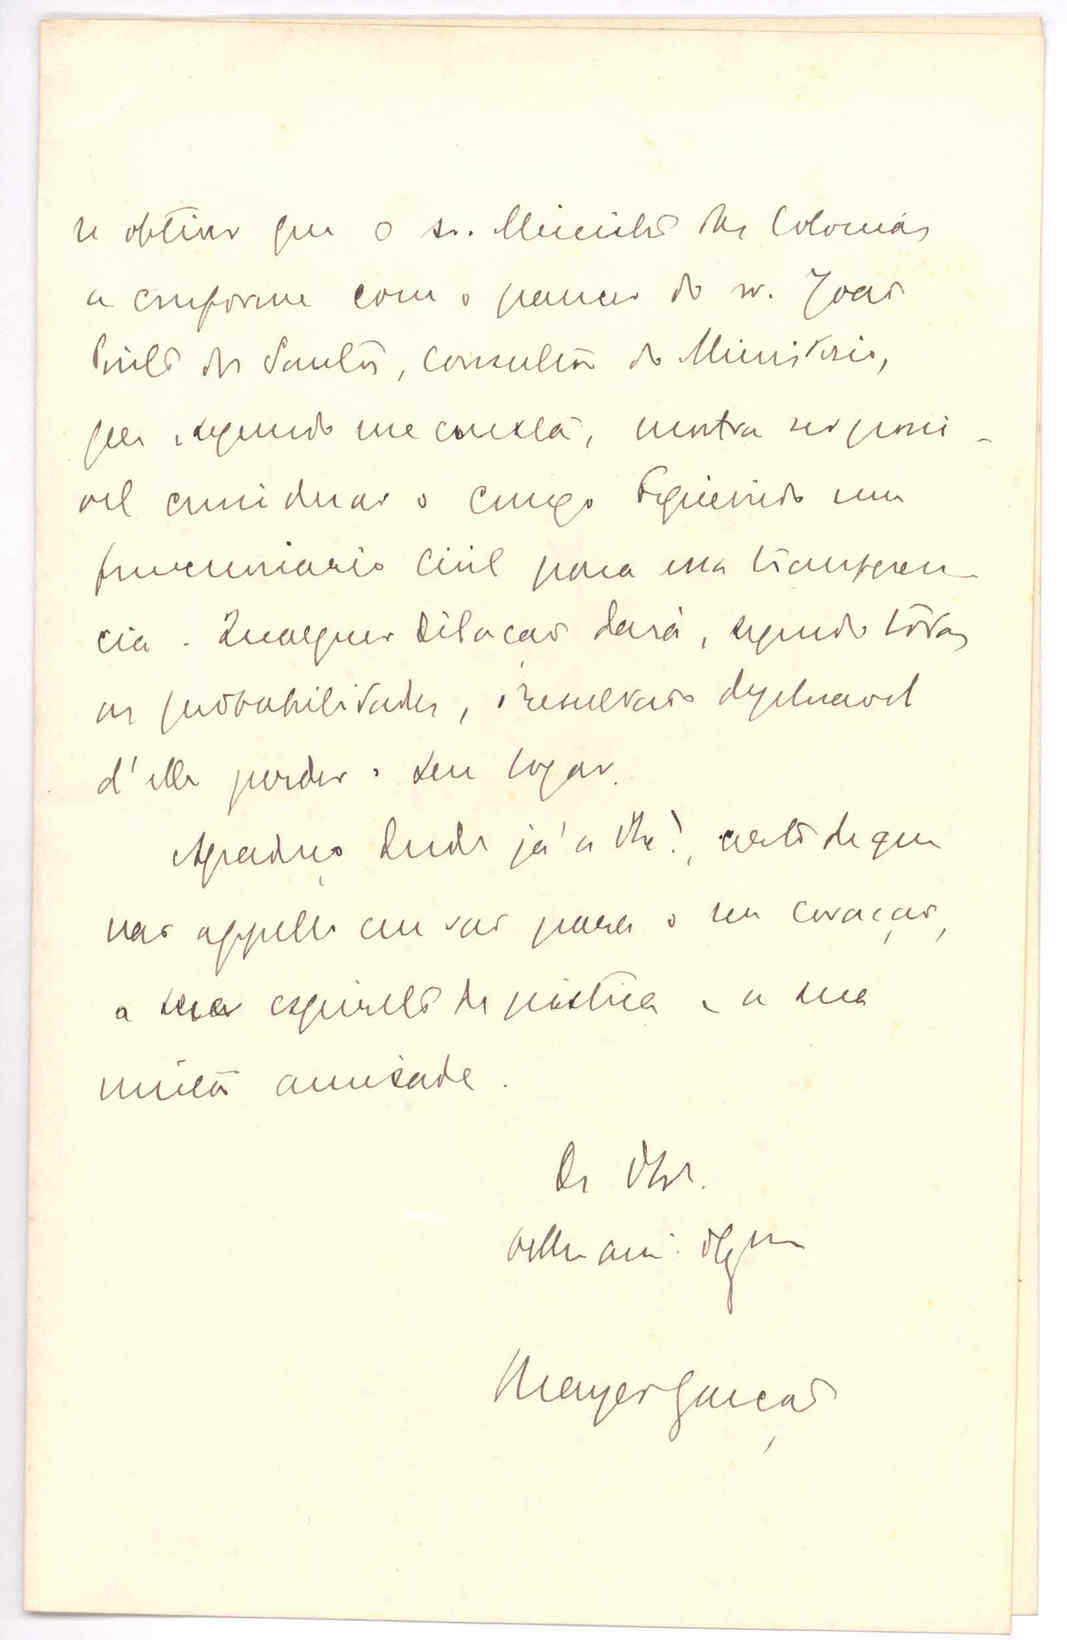 se obtiver que o sr. Ministro das Colonias
se conforme com o parecer do sr. João
Pinto dos Santos, consultor do Ministerio,
que, segundo me consta, mostra ser possi-
vel considerar o conego Figueiredo um
funccionario civil para essa transferen-
cia. Qualquer dilação dará, segundo todas
as probabilidades, o resultado deploravel
d'elle perder o seu logar.
Agradeço desde já a V. Ex.ª, certo de que
não appello em vão para o seu coração,
o seu espirito de justiça e a sua
muita amisade.
De V. Ex.ª
Mayer Garção